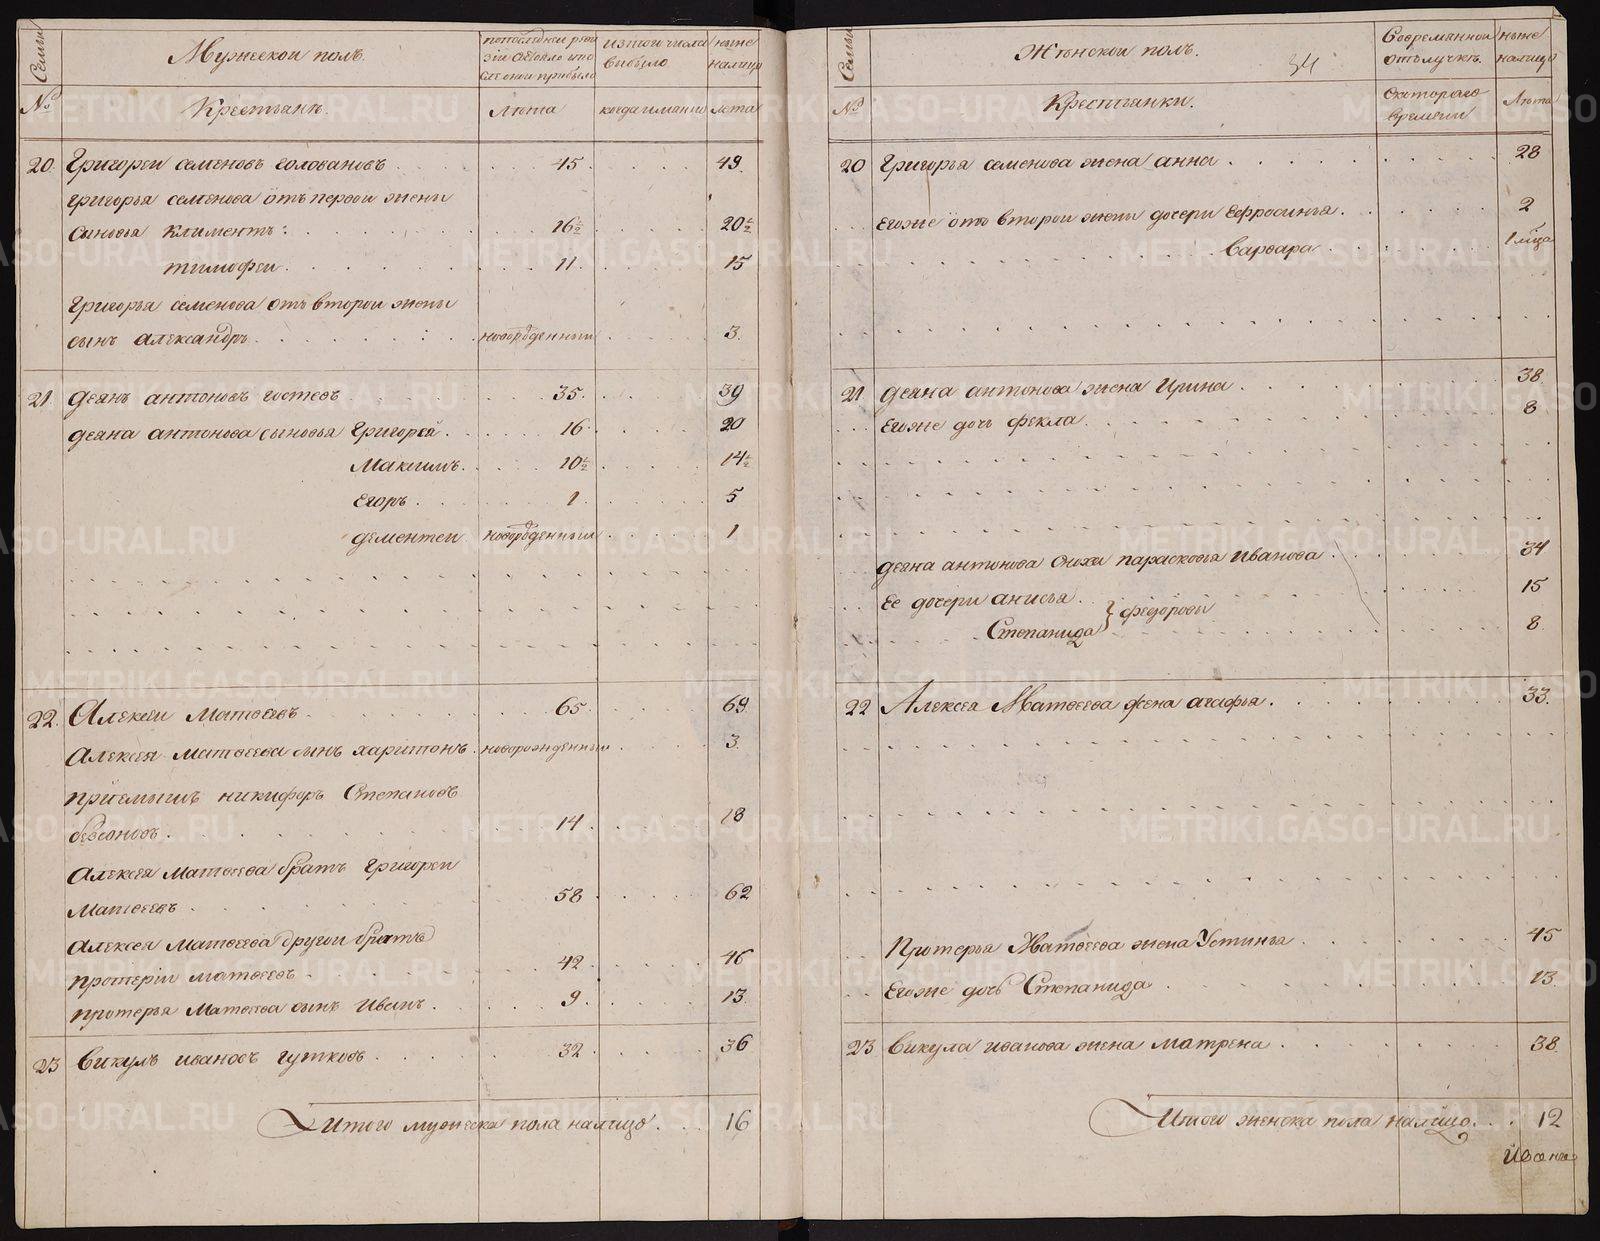 Семьи
Мужескои полъ.
попоследнеи реви
зіи состояло ипо
сле онои прибыло
изтои числа
выбыло
ныне
налицо
№
Крестьянъ.
Лѣта
когда имянно
Лѣта
20. Григореи семеновъ головановъ 45. 49.
григорья семенова отъ первои жены
сыновья Климентъ: 16½ 20½
тимофеи. 11. 15
Григорья семенова отъ второи жены
сынъ александръ. новорожденныи 3.
21. деянъ антоновъ гостевъ 35. 39
деяна антонова сыновья Григореи. 16. 20
Максимъ. 10½ 14½
Егоръ. 1 5
дементеи новорожденныи 1
22. Алексеи Матвеевъ 65. 69
Алексея матвеева сынъ харитонъ. новорожденныи 3.
пріемышъ никифоръ Степановъ
безсоновъ. 14. 18
Алексея Матвеева братъ Григореи
Матвеевъ. 58. 62
Алексея Матвеева другои братъ
протерiи матвеевъ. 42. 46
протерья Матвеева сынъ Иванъ. 9. 13.
23 Викулъ ивановъ гутковъ. 32. 36
Итого мужеска пола налицо. 16
Семьи
Женскои полъ.
34
Совремяннои
отълучкѣ.
ныне
налицо
№
Крестьянки.
Скотораго
времени
Лѣта
20 Григорья семенова жена анна 28
Егоже отъ второи жены дочери Ефросинья. 2
Варвара. 1 мѣца
21 деяна антонова жена Ирина. 38.
Егоже дочь фекла. 8
деяна антонова сноха парасковья Иванова 34
Ее дочери анисья. 15
Степанида } федоровы 8.
22 Алексея Матвеева жена агафья. 33.
Протерья Матвеева жена Устинья 45
Егоже дочь Степанида 13.
23 Викула иванова жена матрена. 38.
Итого женска пола налицо. 12
METRIKI.GASO-URAL.RU